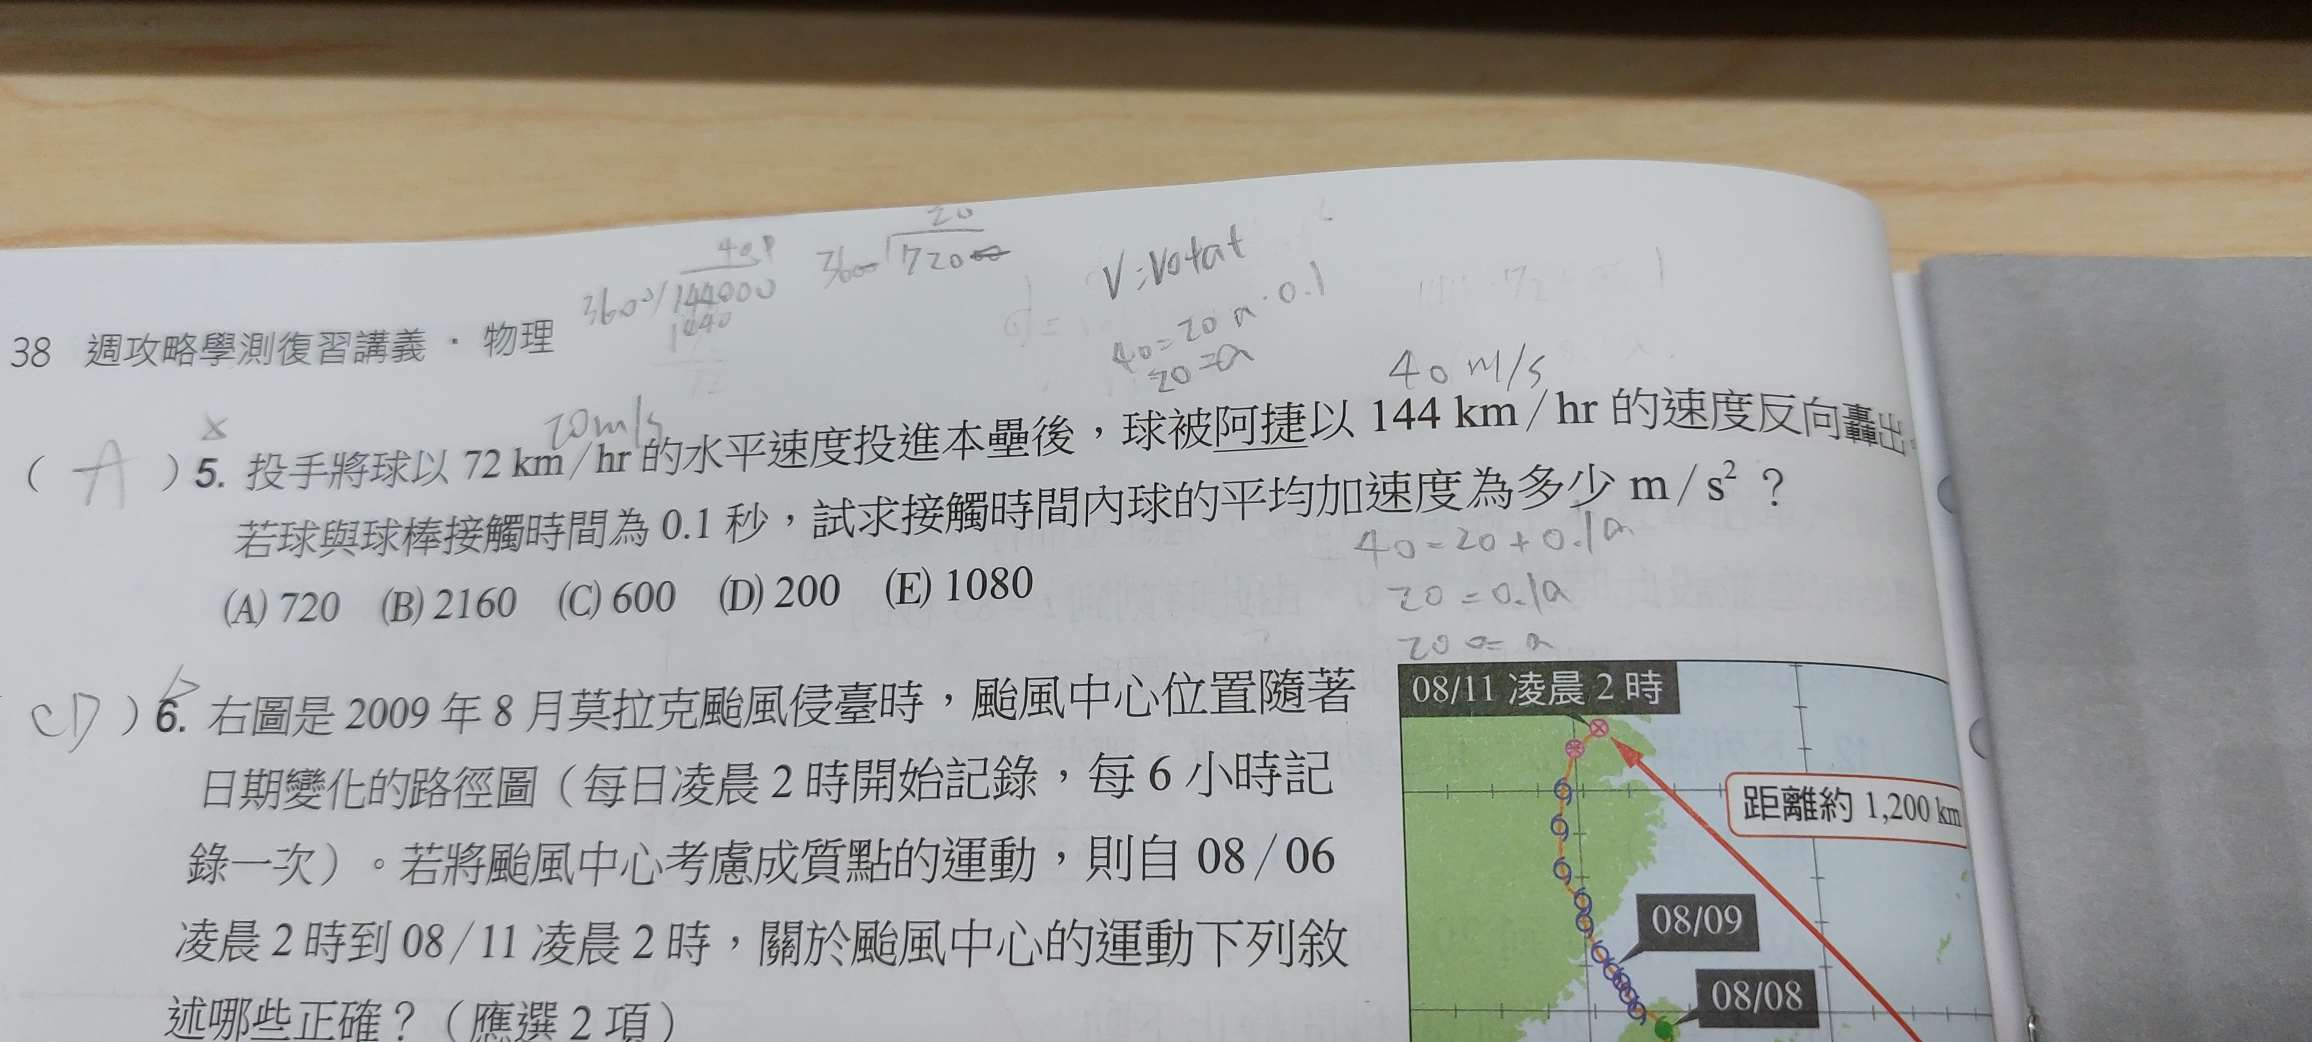 20
40
3600 144000
1440
3600 72000
V=V0+at
40=20 a·0.1
20=a
38 週攻略學測復習講義・物理
20m/s
40 m/s
( A ) 5. 投手將球以 72 km/hr 的水平速度投進本壘後，球被阿捷以 144 km/hr 的速度反向轟出，
若球與球棒接觸時間為 0.1 秒，試求接觸時間內球的平均加速度為多少 m/s²？
40=20+0.1a
(A) 720 (B) 2160 (C) 600 (D) 200 (E) 1080
20=0.1a
200=a
( CD ) 6. 右圖是 2009 年 8 月莫拉克颱風侵臺時，颱風中心位置隨著
日期變化的路徑圖（每日凌晨 2 時開始記錄，每 6 小時記
錄一次）。若將颱風中心考慮成質點的運動，則自 08/06
凌晨 2 時到 08/11 凌晨 2 時，關於颱風中心的運動下列敘
述哪些正確？（應選 2 項）
08/11 凌晨 2 時
距離約 1,200 km
08/09
08/08